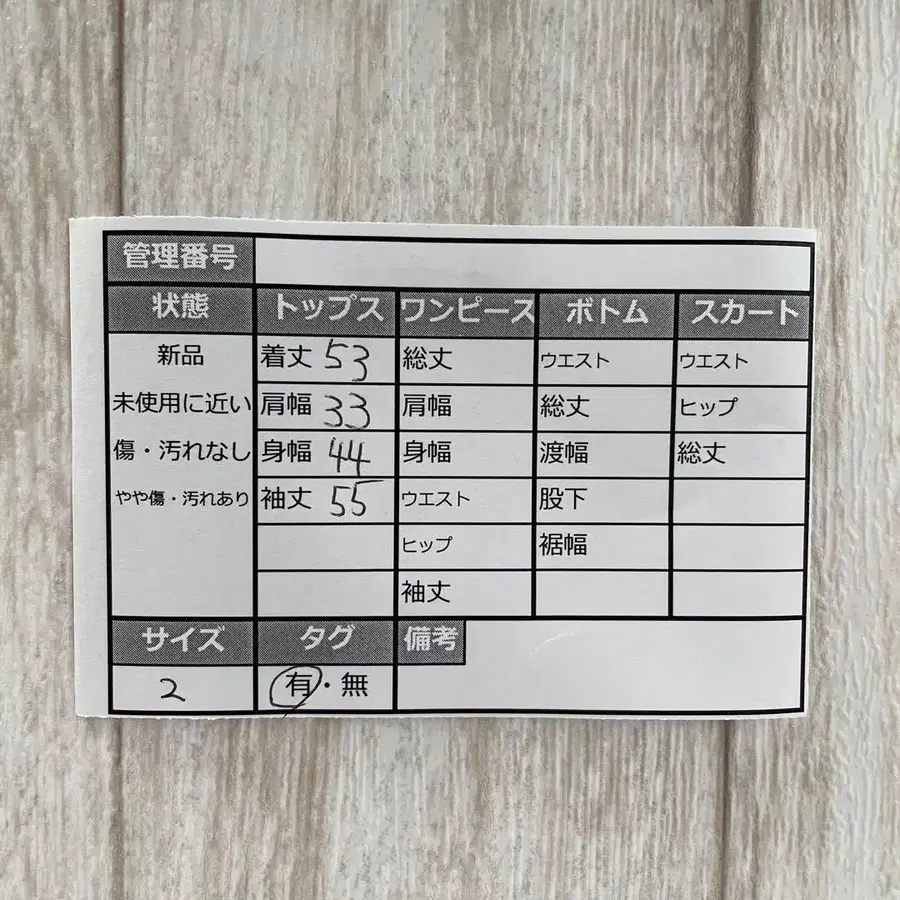 管理番号
状態 トップス ワンピース ボトム スカート
新品 着丈 53 総丈 ウエスト ウエスト
未使用に近い 肩幅 33 肩幅 総丈 ヒップ
傷・汚れなし 身幅 44 身幅 渡幅 総丈
やや傷・汚れあり 袖丈 55 ウエスト 股下
ヒップ 裾幅
袖丈
サイズ タグ 備考
2 有・無